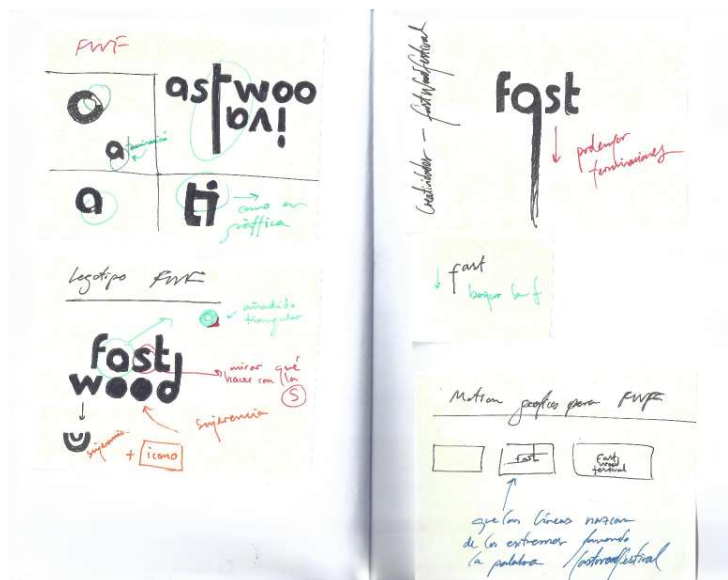 FWF
astwoo
iva
a
terminació
a
ti
como en
gráffica
Logotipo FWF
añadido
triangular
fast
wood
mirar qué
hacer con la
S
sujerencia
sujerencia
+ icono
Creatividades - fastwoodfestival
fast
prolongar
terminaciones
fast
bajar la f
Motion grafics para FWF
fast
fast
wood
festival
que las líneas nazcan
de los extremos formando
la palabra fastwoodfestival